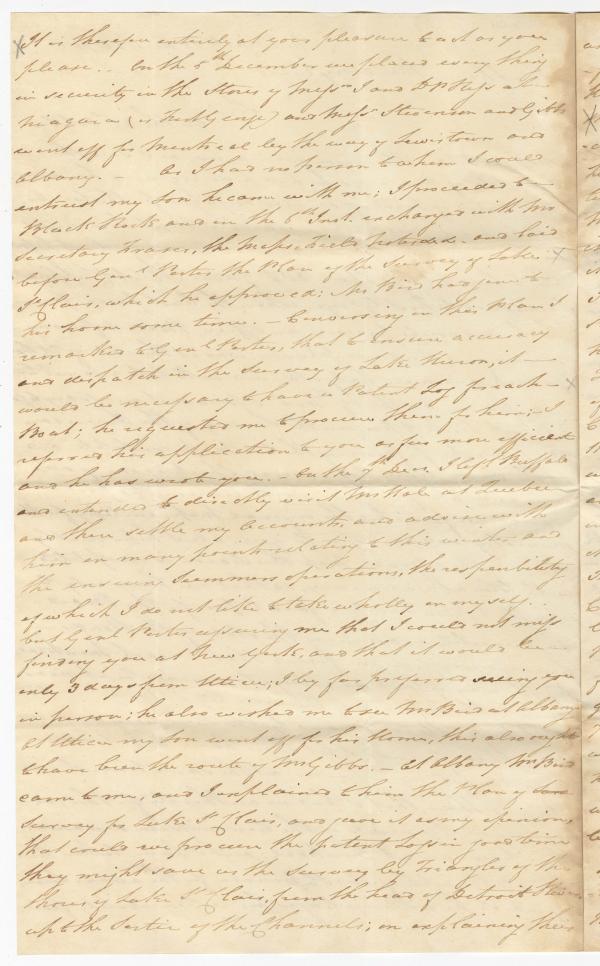 It is therefore entirely at your pleasure to act as you
please.. On the 5th December we placed every thing
in security in the Stores of Messrs J and D
Niagara (or Fort George) and Messrs Stevenson and Gibbs
went off for Montreal by the way of Lewistown and
Albany. — As I had no person to whom I could
entrust my son he came with me; I proceeded to —
Black Rock and on the 6th Inst. exchanged with Mr
Secretary Fraser, the Maps & Field and laid
before Genl Porter the Plan of the Survey of Lake
St Clair, which he approved: Mr Bird had gone to
his home some time. — Conversing on this Plan I
remarked to Genl Porter, that to ensure accuracy
and dispatch in the survey of Lake Huron, it —
would be necessary to have a Patent Log for each
Boat; he requested me to procure them for him; I
referred his application to you as far more efficient
and he has wrote you. — On the 7th Decr I left Buffalo
and intended to directly visit Mr Hale at Quebec
and there settle my Accounts, and advise with
him on many points relating to this winter and
the ensuing Summers operations, the responsibility
of which I do not like to take wholly on myself..
but Genl Porter assuring me that I could not miss
finding you at New York, and that it would be
only 3 days from Utica; I by far preferred seeing you
in person; he also wished me to see Mr Bird at Albany
At Utica my son went off for his Home, this also ought
to have been the route of Mr Gibbs. — At Albany Mr Bird
came to me, and I explained to him the Plan of
survey for Lake St Clair, and gave it as my opinion,
that could we procure the patent Logs in good time
they might save us the survey by Triangles of the
shores of Lake St Clair, from the head of Detroit River
up to the of the Channels; on explaining this